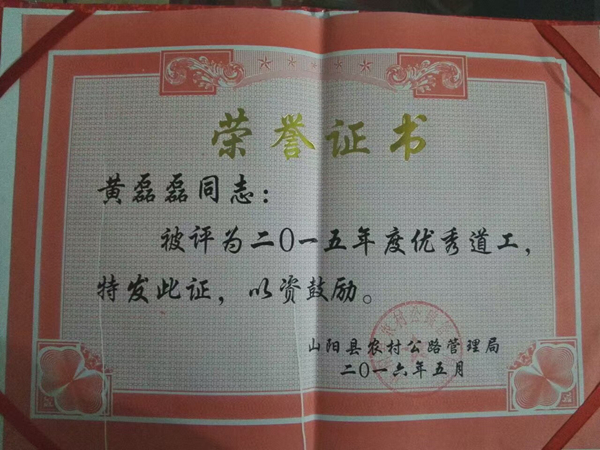 荣誉证书
黄磊磊同志：
被评为二〇一五年度优秀道工，
特发此证，以资鼓励。
山阳县农村公路管理局
二〇一六年五月